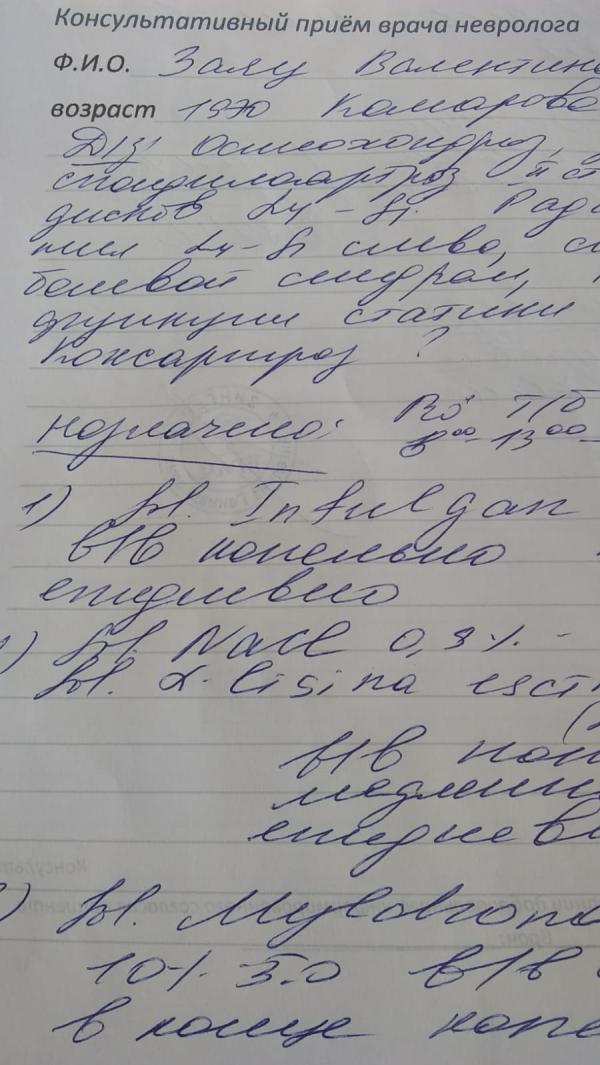 Консультативный приём врача невролога
Ф.И.О. Залу Валентин
возраст 1970 Комарово
D/z: Остеохондроз,
спондилоартроз II ст
дисков L4 - S1. Рад
L4-S1 слева,
болевой синдром,
функции статики
Коксартроз ?
назначено:
8 00 - 13 00 -
1) Sol. Infulgan
в/в капельно
ежедневно
Sol. NaCl 0,9% -
Sol. L. lisina esci
в/в кап
медленн
ежеднев
Sol. Myldrona
10% 5.0 в/в
в конце капе